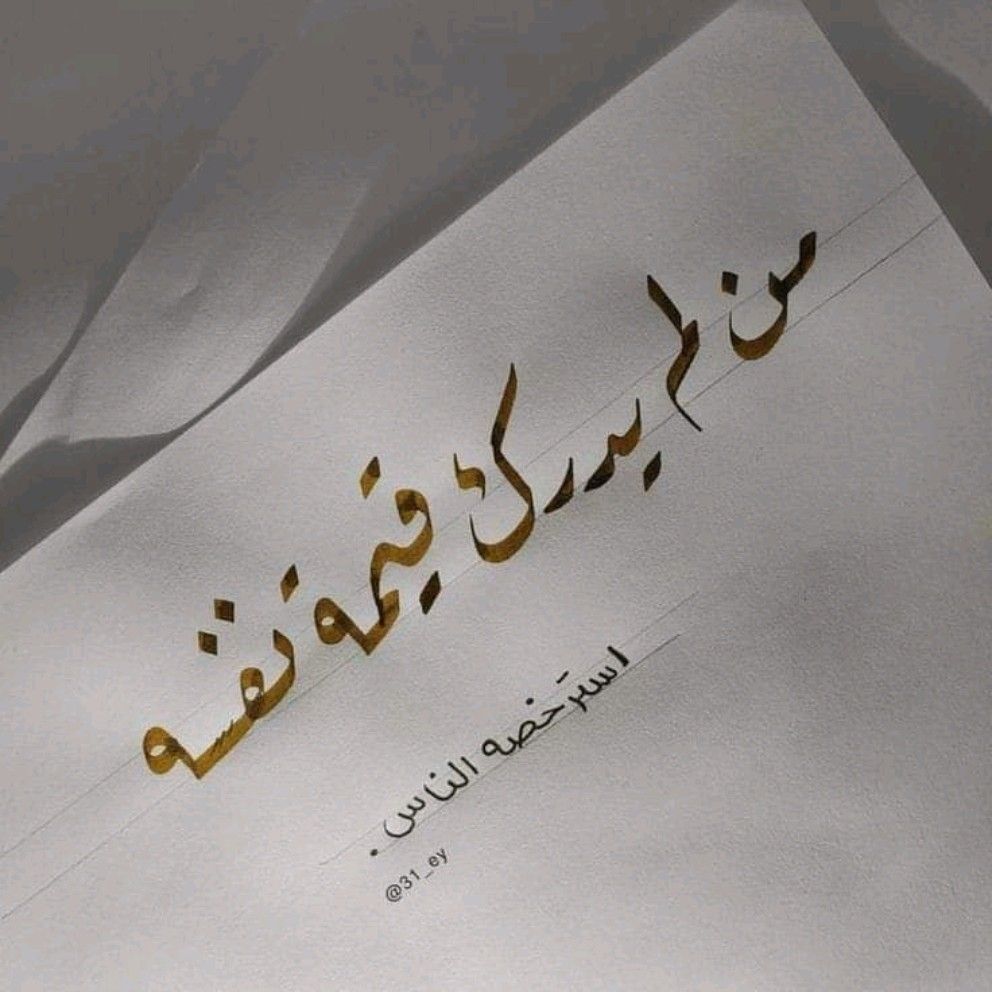 من لم يدرك قيمه نفسه
استرخصه الناس.
@31_ey